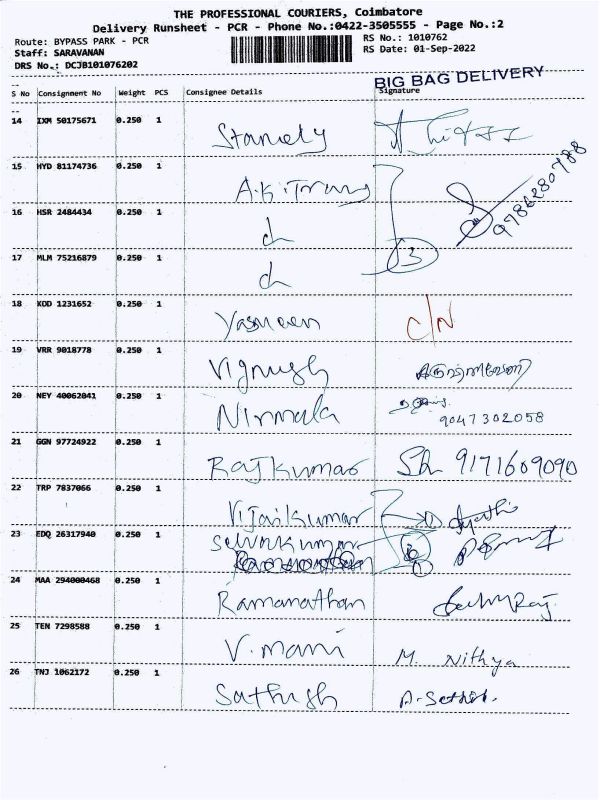 THE PROFESSIONAL COURIERS, Coimbatore
Delivery Runsheet - PCR - Phone No.:0422-3505555 - Page No.:2
Route: BYPASS PARK - PCR
Staff: SARAVANAN
DRS No.: DCJB101076202
RS No.: 1010762
RS Date: 01-Sep-2022
BIG BAG DELIVERY
S No Consignment No Weight PCS Consignee Details Signature
14 IXM 50175671 0.250 1 Stanely
15 HYD 81174736 0.250 1
16 HSR 2484434 0.250 1 9786280788
17 MLM 75216879 0.250 1 3
18 KOD 1231652 0.250 1 Yasmeen C/N
19 VRR 9018778 0.250 1 Vignush
20 NEY 40062041 0.250 1 Nirmala 9047302058
21 GGN 97724922 0.250 1 Rajkumar Sh 9171609090
22 TRP 7837066 0.250 1 Vijaikumar
23 EDQ 26317940 0.250 1 Selvakumar
24 MAA 294000468 0.250 1 Ramanathan
25 TEN 7298588 0.250 1 V. mani M. Nithya
26 TNJ 1062172 0.250 1 Sathish